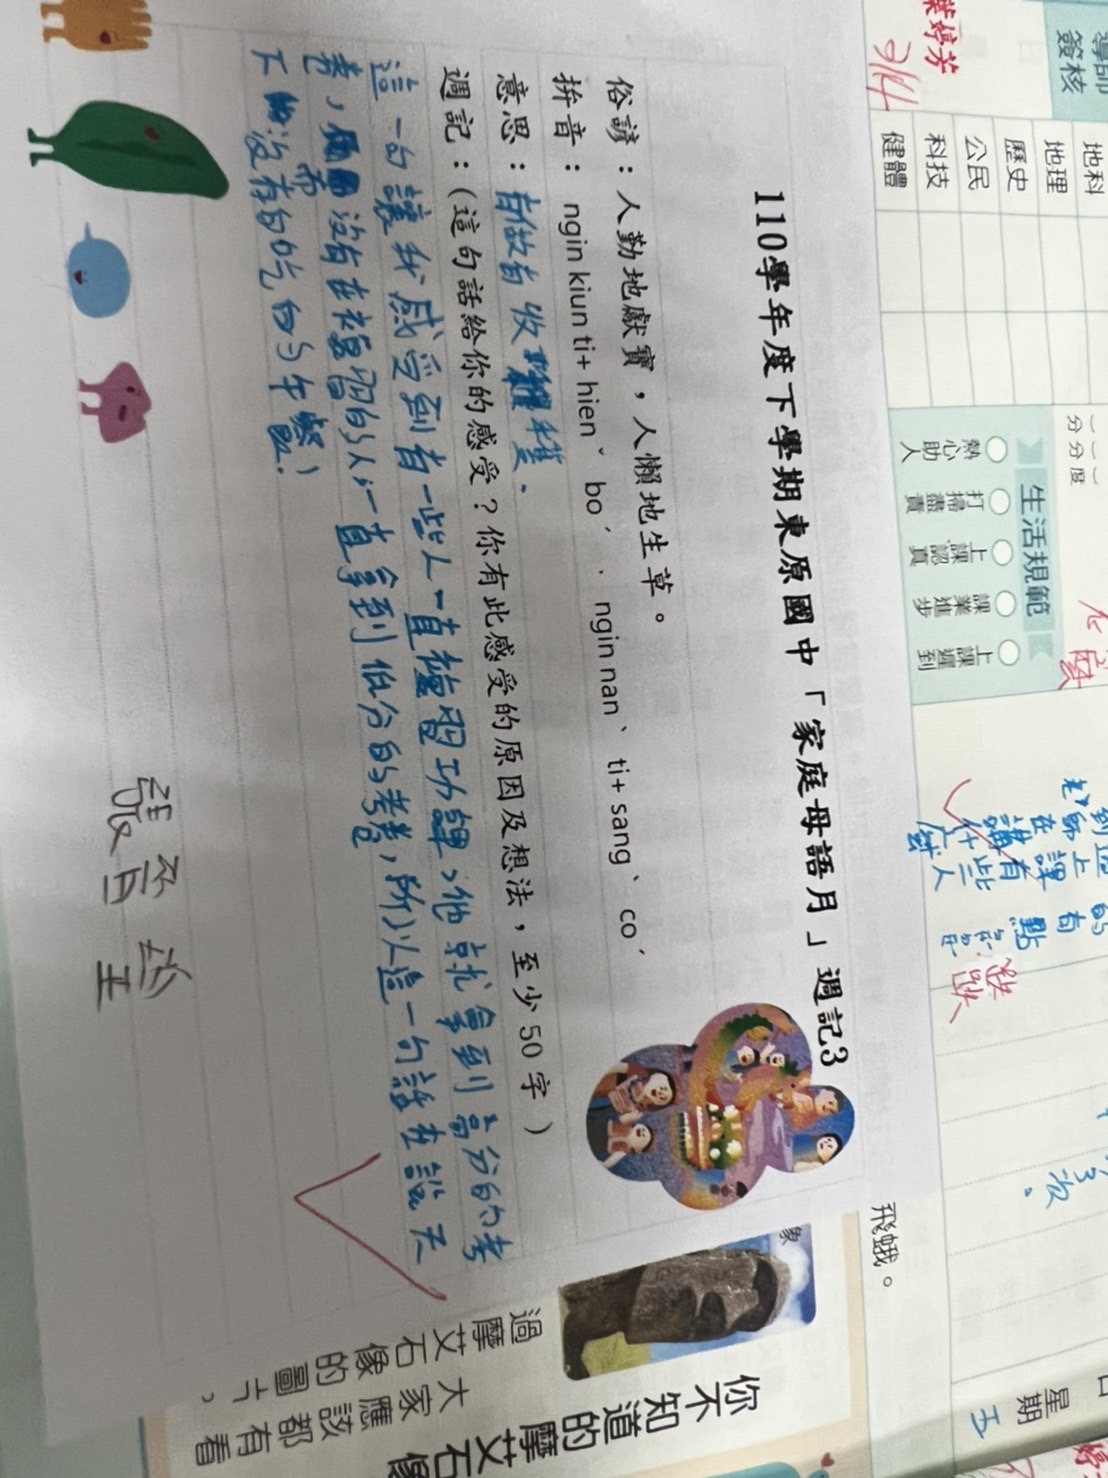 110學年度下學期東原國中「家庭母語月」週記3
俗諺：人勤地獻寶，人懶地生草。
拼音： ngin kiun ti+ hienˇ boˊ，ngin nanˋ ti+ sangˋ coˊ
意思：有做有收穫。
週記：（這句話給你的感受？你有此感受的原因及想法，至少50字）
這一句讓我感受到有一些人一直複習功課，他就拿到高分的考
卷，而沒有在複習的人一直拿到低分的考卷，所以這一句話在說天
下沒有白吃的午餐。
導師
簽核
葉婷芳
地科
地理
歷史
公民
科技
健體
生活規範
熱心助人
打掃盡責
上課認真
課業進步
上課遲到
飛蛾。
星期
五
你不知道的摩艾石像
大家應該都有看
過摩艾石像的圖片，